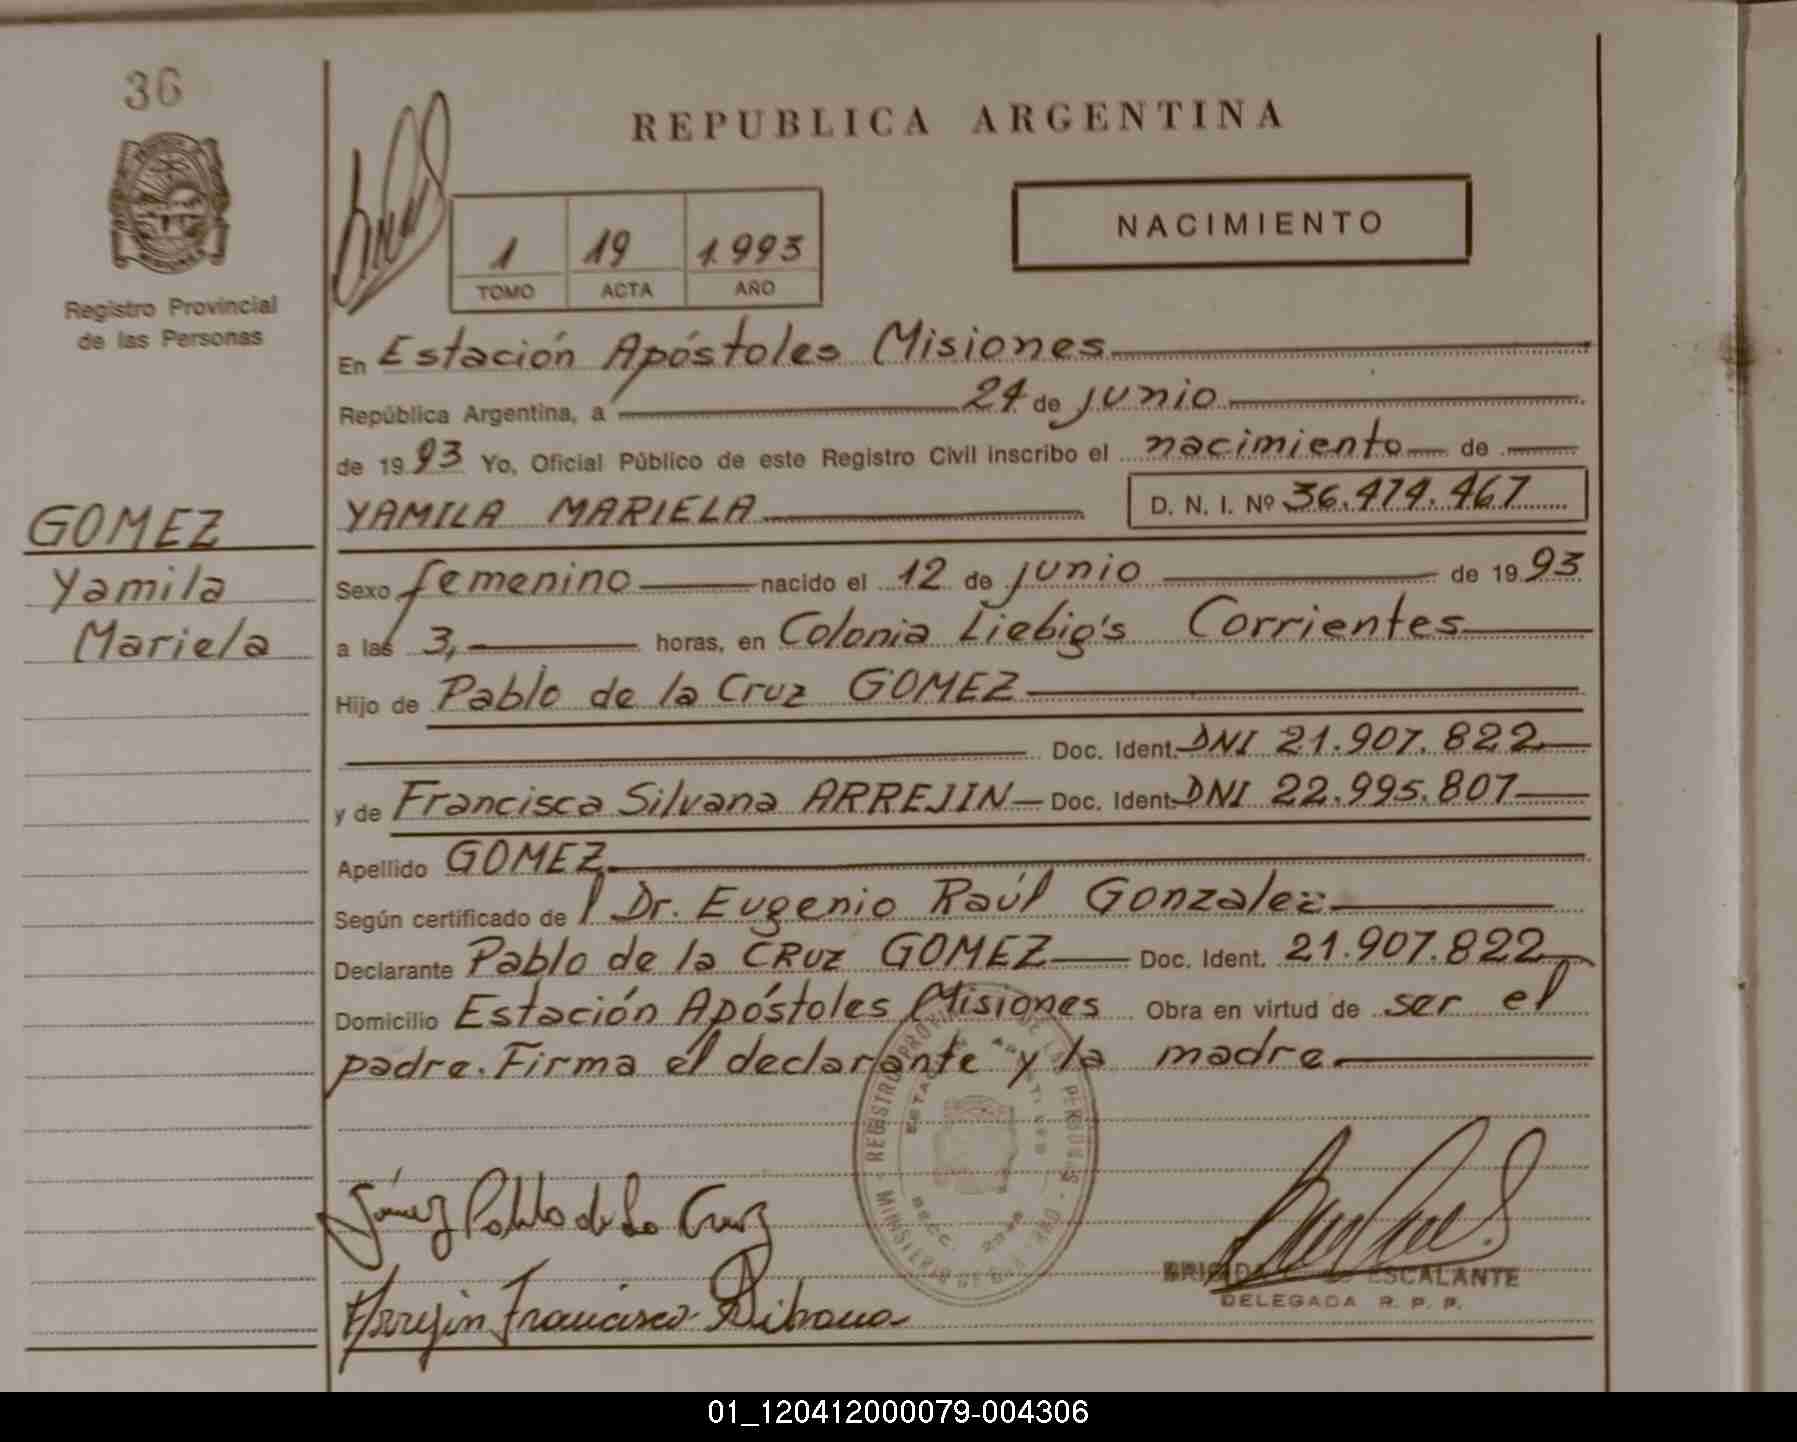 36
REPUBLICA ARGENTINA
NACIMIENTO
1 19 1993
TOMO ACTA AÑO
Registro Provincial
de las Personas
En Estación Apóstoles Misiones
República Argentina, a 24 de junio
de 1993 Yo, Oficial Público de este Registro Civil inscribo el nacimiento de
YAMILA MARIELA D. N. I. Nº 36.474.467
GOMEZ
Yamila
Mariela
Sexo femenino nacido el 12 de junio de 1993
a las 3, horas, en Colonia Liebig's Corrientes
Hijo de Pablo de la Cruz GOMEZ
Doc. Ident. DNI 21.907.822
y de Francisca Silvana ARREJIN Doc. Ident. DNI 22.995.807
Apellido GOMEZ
Según certificado de Dr. Eugenio Raúl Gonzalez
Declarante Pablo de la CRUZ GOMEZ Doc. Ident. 21.907.822
Domicilio Estación Apóstoles Misiones Obra en virtud de ser el
padre. Firma el declarante y la madre
REGISTRO PROVINCIAL DE LAS PERSONAS
MINISTERIO DE
Gómez Pablo de La Cruz
Arrejin Francisca Silvana
ESCALANTE
DELEGADA R. P. P.
01_120412000079-004306